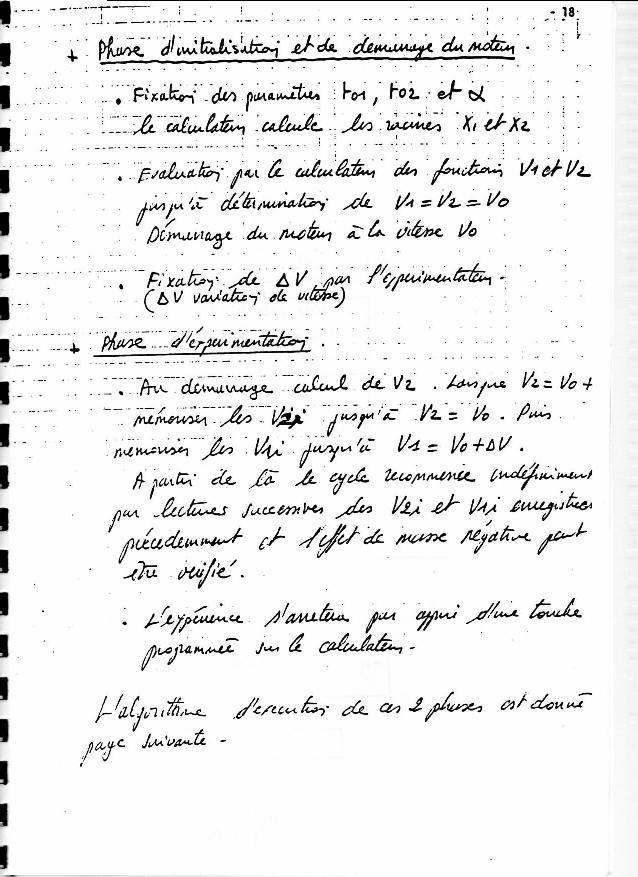 - 18 -
+ Phase d'initialisation et de demarrage du moteur.
• Fixation des paramètres to1, to2 et α
le calculateur calcule les racines X1 et X2
• Evaluation par le calculateur des fonctions V1 et V2
jusqu'à détermination de V1 = V2 = Vo
Démarrage du moteur à la vitesse Vo
• Fixation de ΔV par l'expérimentateur -
(ΔV variation de vitesse)
+ Phase d'éxperimentation.
• Au demarrage calcul de V2. Lorsque V2 = Vo +
mémoriser les V2i jusqu'à V2 = Vo. Puis
memoriser les V1i jusqu'à V1 = Vo + ΔV.
A partir de là le cycle recommence indéfiniment
par lectures successives des V2i et V1i enregistrées
précedemment et l'effet de masse négative peut
être vérifié.
• L'expérience s'arretera par appui d'une touche
programmée sur le calculateur -
L'algorithme d'execution de ces 2 phases est donné
page suivante -